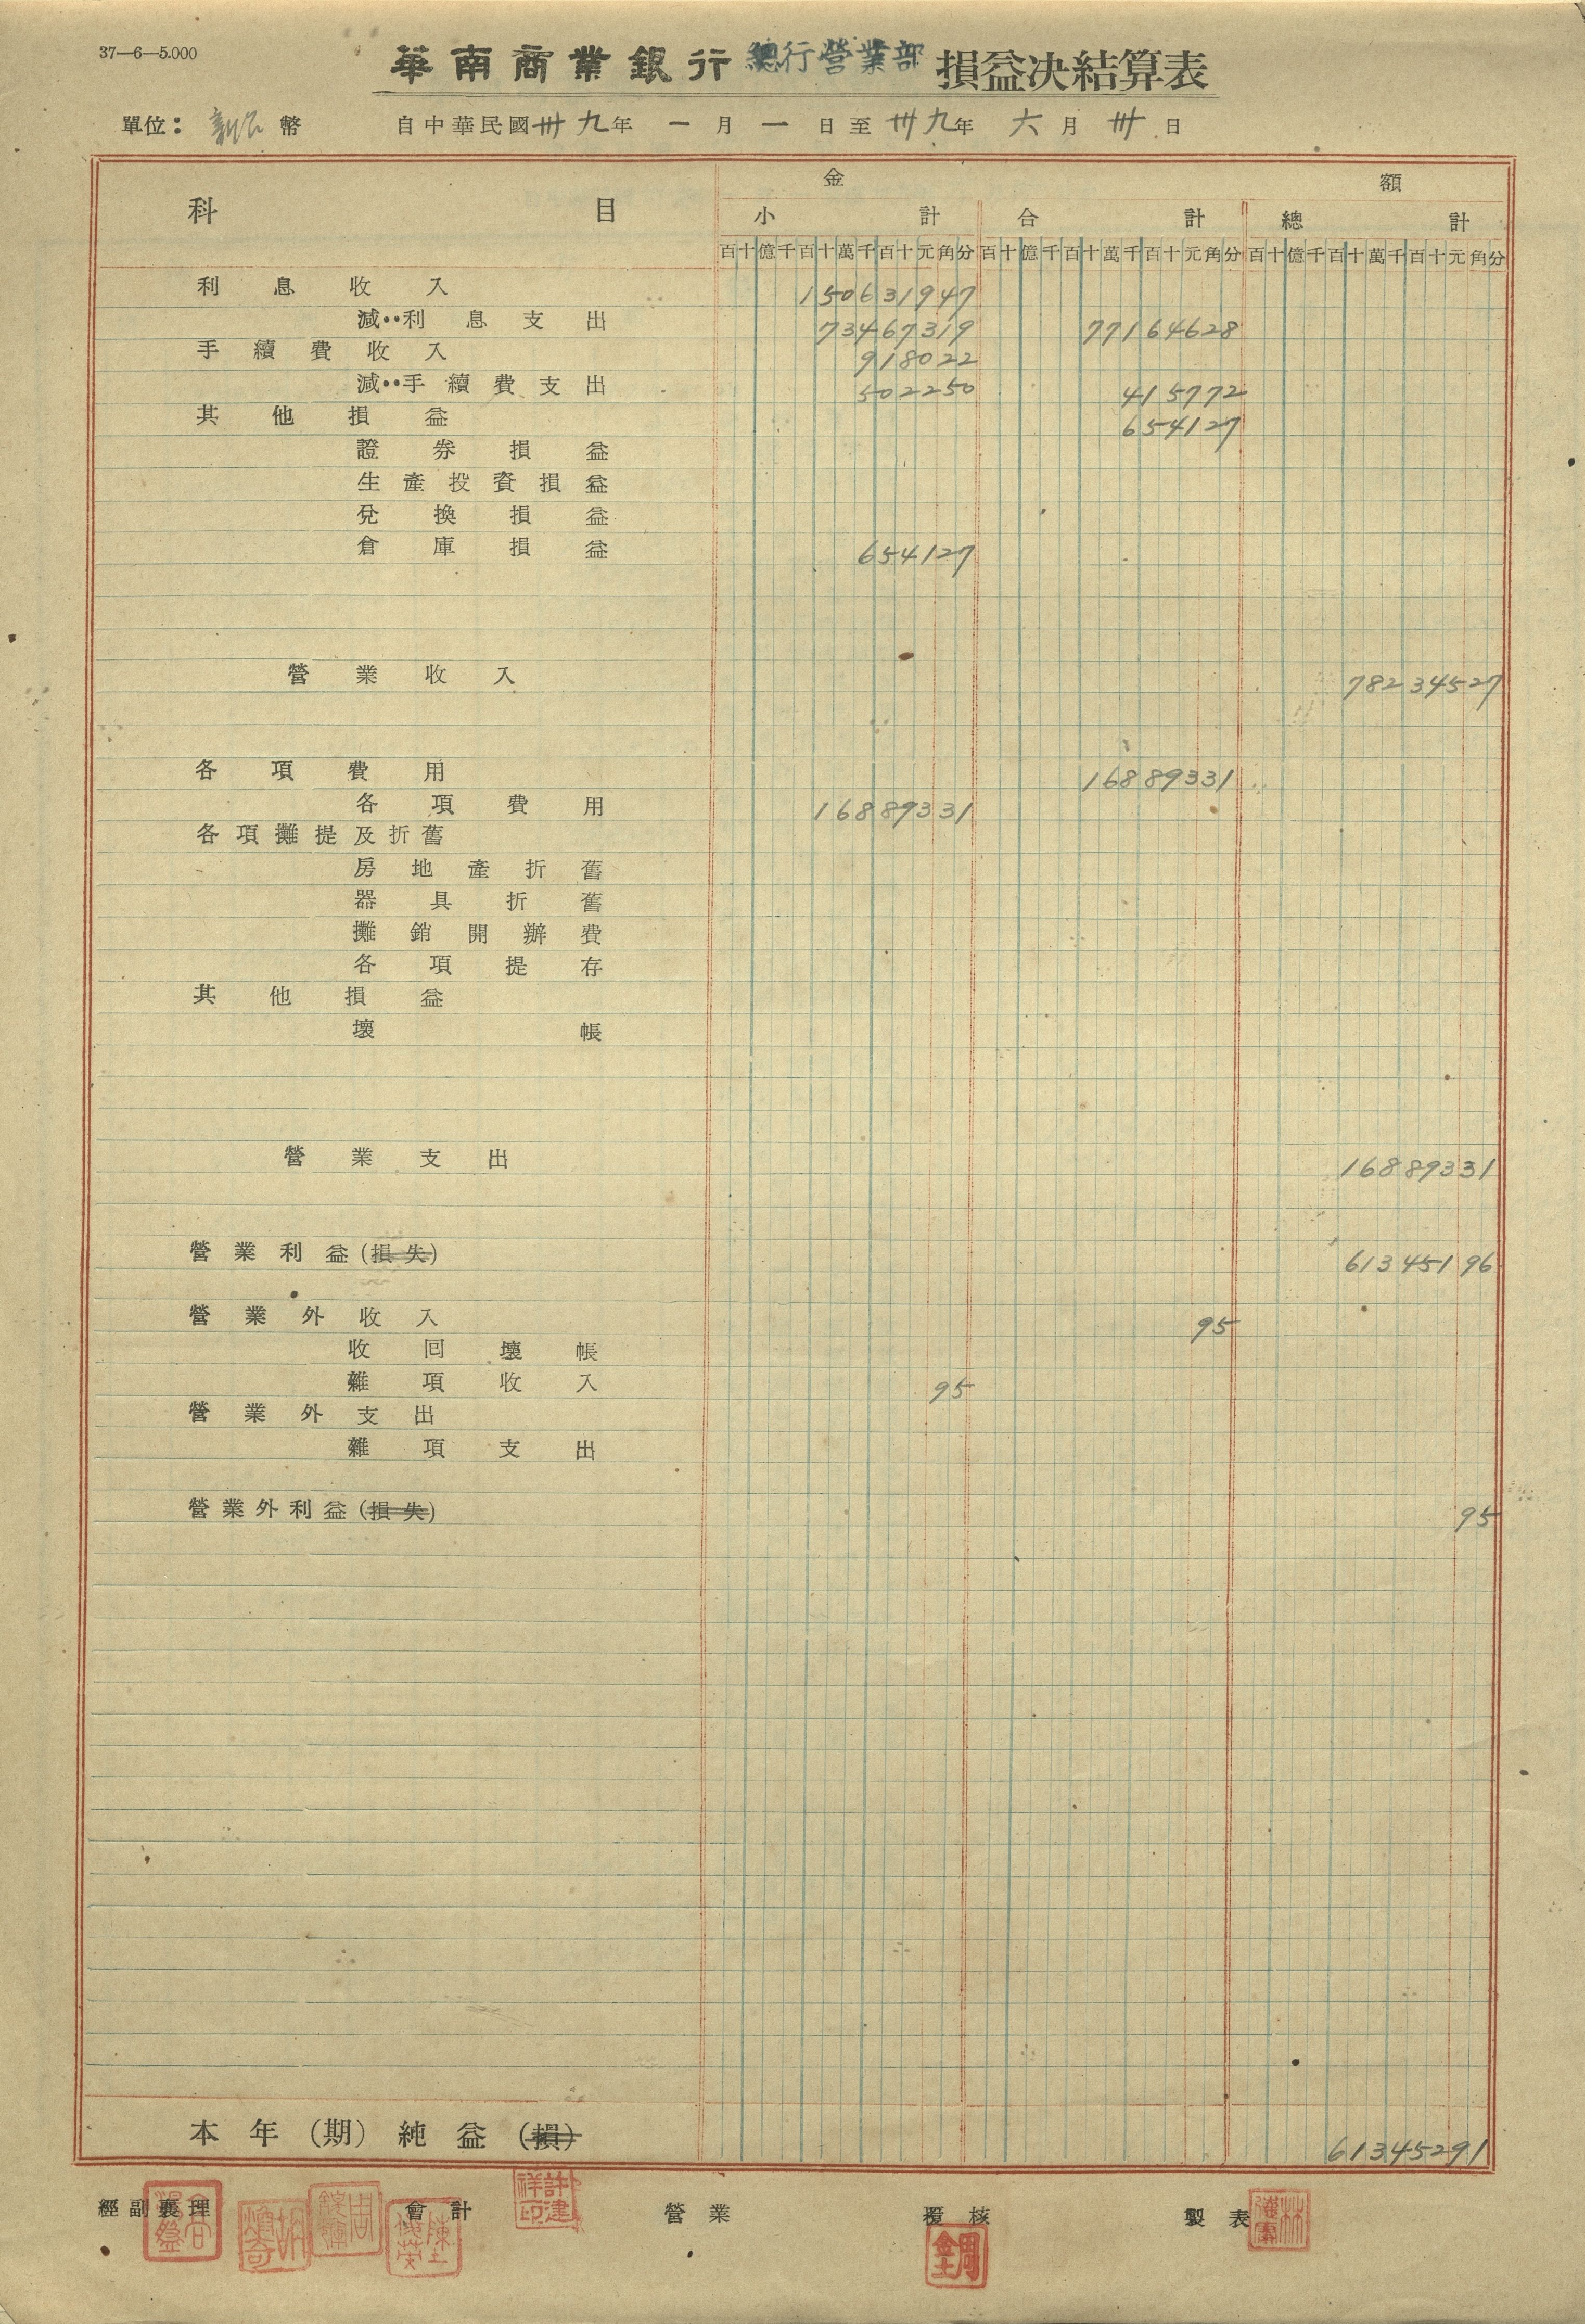 37—6—5.000
華南商業銀行總行營業部損益決結算表
單位：新台幣 自中華民國卅九年一月一日至卅九年六月卅日
金額
科目 小計 合計 總計
百十億千百十萬千百十元角分 百十億千百十萬千百十元角分 百十億千百十萬千百十元角分
利息收入 150631947
減‥利息支出 73467319 77164628
手續費收入 918022
減‥手續費支出 502250 415772
其他損益 654127
證券損益
生產投資損益
兌換損益
倉庫損益 654127
營業收入 78234527
各項費用 16889331
各項費用 16889331
各項攤提及折舊
房地產折舊
器具折舊
攤銷開辦費
各項提存
其他損益
壞帳
營業支出 16889331
營業利益(損失) 61345196
營業外收入 95
收回壞帳
雜項收入 95
營業外支出
雜項支出
營業外利益(損失) 95
本年(期)純益(損) 61345291
經副襄理 會計 營業 覆核 製表
許建祥印